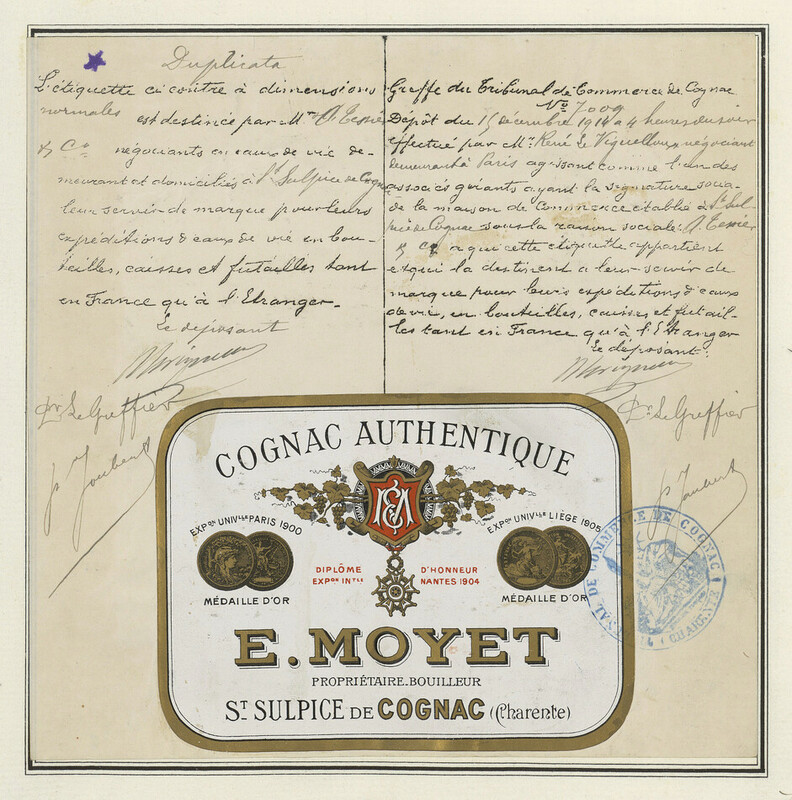 Duplicata
L'étiquette ci contre à dimensions
normales est destinée par Mr A. Tessier
& Co négociants en eaux de vie de-
meurant et domiciliés à St Sulpice de Cognac
leur servir de marque pour leurs
expéditions d'eaux de vie en bou-
teilles, caisses et futailles tant
en France qu'à l'Etranger.
Le déposant
Dr Le Greffier
P. Joubert
Greffe du Tribunal de Commerce de Cognac
No 7009
Dépôt du décembre 1914 à 4 heures du soir
effectué par Mr René Le négociant
demeurant à Paris agissant comme l'un des
associés gérants ayant la signature socia-
de la maison de Commerce établie à St Sul
pice de Cognac sous la raison sociale: A. Tessier
& Co à qui cette étiquette appartient
et qui la destinent à leur servir de
marque pour leurs expéditions d'eaux
de vie, en bouteilles, caisses et futail-
les tant en France qu'à l'Etranger
Le déposant:
Dr Le Greffier
P. Joubert
COGNAC AUTHENTIQUE
EXPON UNIVLLE PARIS 1900
MÉDAILLE D'OR
DIPLÔME D'HONNEUR
EXPON INTLE NANTES 1904
EXPON UNIVLLE LIÈGE 1905
MÉDAILLE D'OR
E. MOYET
PROPRIÉTAIRE.BOUILLEUR
ST SULPICE DE COGNAC (Charente)
DE COMMERCE DE COGNAC
CHARENTE